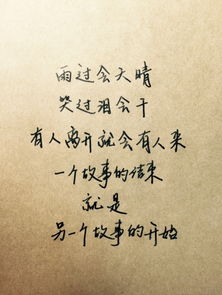 雨过会天晴
哭过泪会干
有人离开就会有人来
一个故事的结束
就是
另一个故事的开始